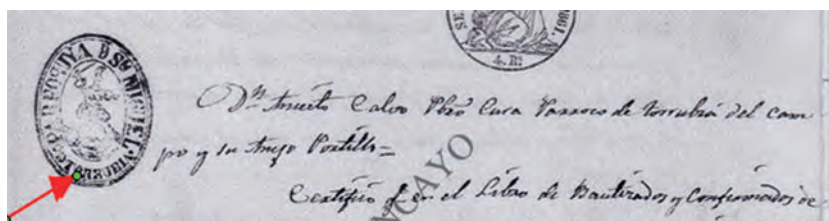 1861.
4. Rs
Dn Aniceto Calvo Pbro Cura Parroco de Torrubia del cam
po y su Anejo Portillo=
Certifico q. en el Libro de Bautizados y Confirmados de
NCAYO